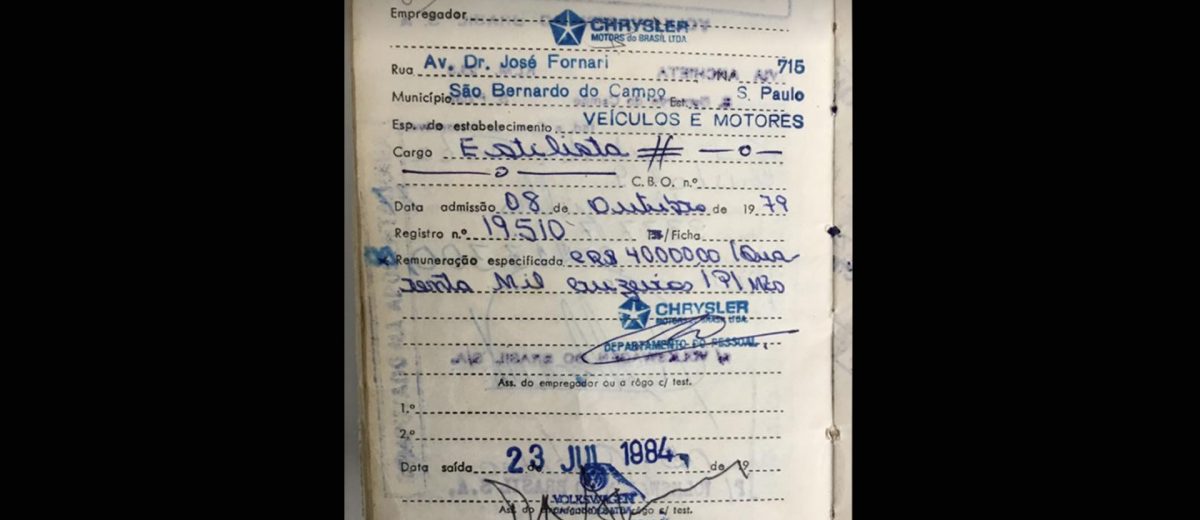 Empregador CHRYSLER
MOTORS do BRASIL LTDA.
Rua Av. Dr. José Fornari 715
Município São Bernardo do Campo Est. S. Paulo
Esp. do estabelecimento VEÍCULOS E MOTORES
Cargo Estilista # —o—
—o— C. B. O. n.º
Data admissão 08 de Outubro de 1979
Registro n.º 19510 /Ficha
Remuneração especificada CR$ 40.000,00 (Qua
renta Mil cruzeiros) P/ Mês
CHRYSLER
MOTORS do BRASIL LTDA.
DEPARTAMENTO DO PESSOAL
Ass. do empregador ou a rôgo c/ test.
1.º
2.º
Data saída 23 de JUL 1984 de 19
VOLKSWAGEN
Ass. do empregador ou a rôgo c/ test.